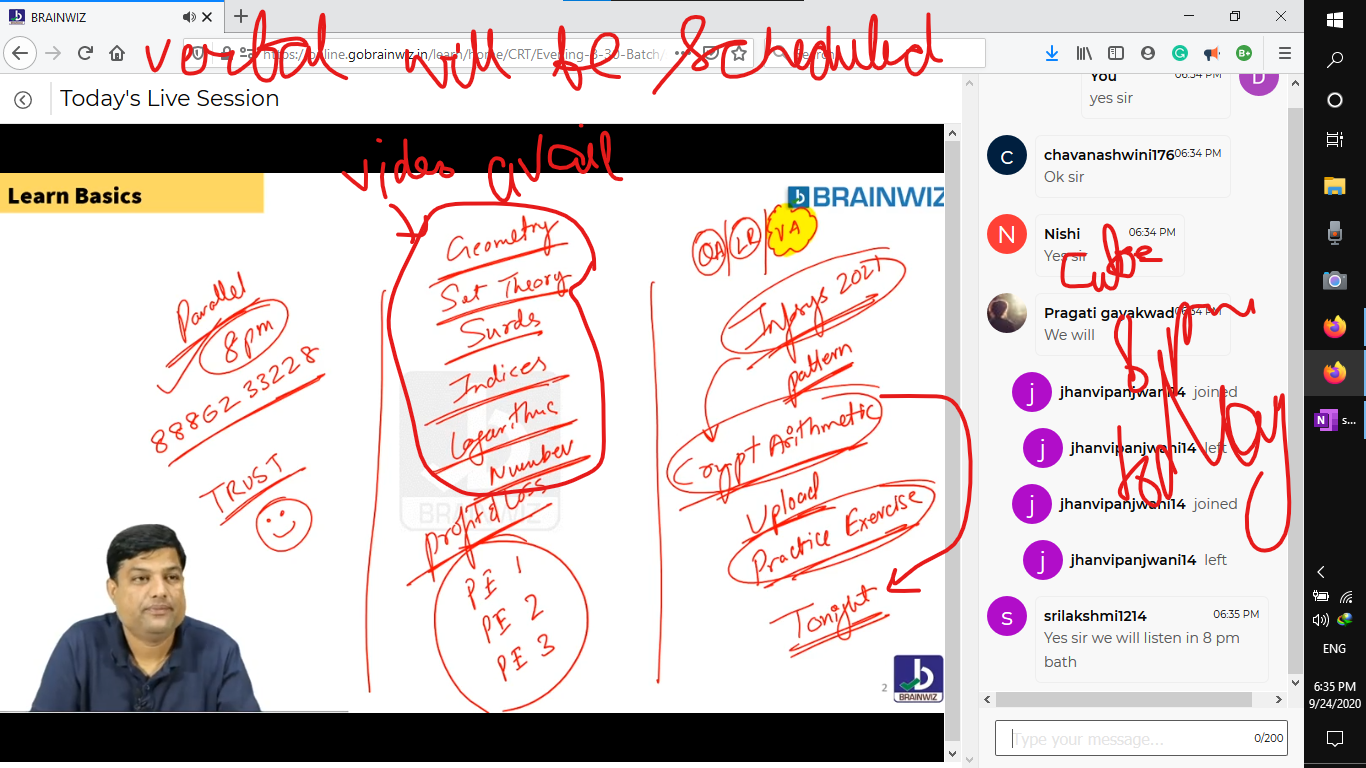 BRAINWIZ
verbal will be scheduled
https://online.gobrainwiz.in/learn/home/CRT/Evening-6-30-Batch/
Search
Today's Live Session
video avail
Learn Basics
BRAINWIZ
Parallel
8pm
88862 33228
TRUST
Geometry
Set Theory
Surds
Indices
Logarithmic
Number
Profit & Loss
PE 1
PE 2
PE 3
BRAINWIZ
QA LR VA
Infosys 2021
pattern
Crypt Arithmetic
Upload
Practice Exercise
Tonight
2
BRAINWIZ
You 06:34 PM
D
yes sir
C
chavanashwini176 06:34 PM
Ok sir
N
Nishi 06:34 PM
Yes sir
Cube
Pragati gavakwad 06:34 PM
We will
j
jhanvipanjwani14 joined
j
jhanvipanjwani14 left
j
jhanvipanjwani14 joined
j
jhanvipanjwani14 left
s
srilakshmi1214 06:35 PM
Yes sir we will listen in 8 pm
bath
Type your message...
0/200
N s...
ENG
6:35 PM
9/24/2020